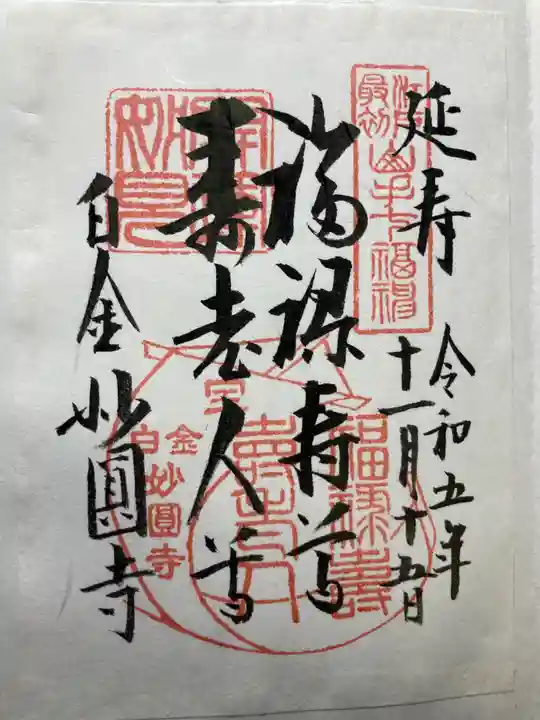 延寿
令和五年
十一月十五日
福禄寿尊
寿老人尊
白金 妙圓寺
江戸最初
山手七福神
福禄寿
寿老人
白金
妙圓寺